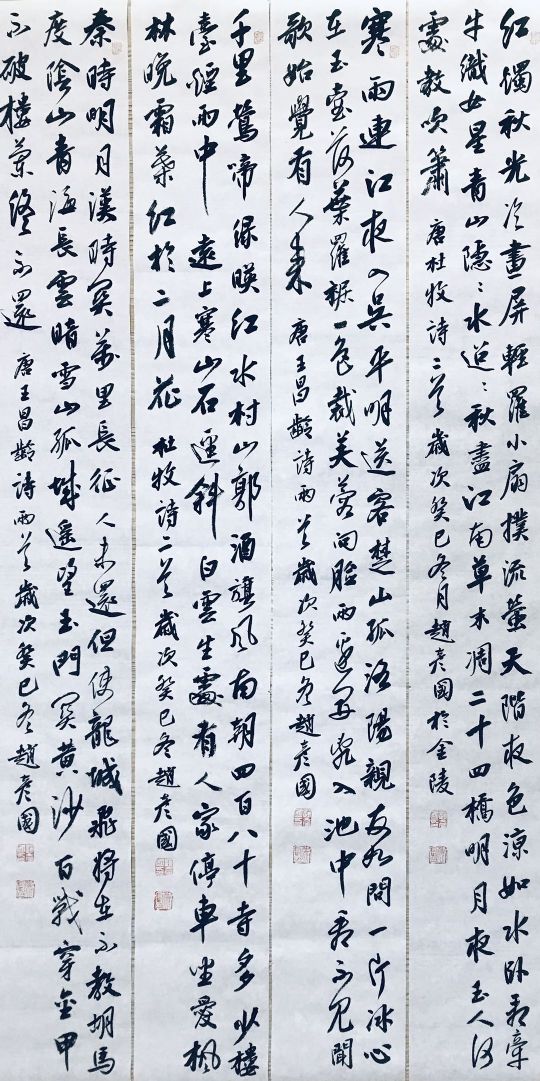 红燭秋光冷畫屏輕羅小扇撲流螢天階夜色涼如水卧看牽
牛織女星青山隱:水迢:秋盡江南草木凋二十四橋明月夜玉人何
處教吹簫 唐杜牧詩二首歲次癸巳冬月趙彥國於金陵
寒雨連江夜入吳平明送客楚山孤洛陽親友如問一片冰心
在玉壺荷葉羅裙一色裁芙蓉向臉兩邊開亂入池中看不見聞
歌始覺有人來 唐王昌齡詩兩首歲次癸巳冬趙彥國
千里鶯啼綠暎紅水村山郭酒旗風南朝四百八十寺多少樓
臺煙雨中 遠上寒山石逕斜白雲生處有人家停車坐愛楓
林晚霜葉紅於二月花 杜牧詩二首歲次癸巳冬趙彥國
秦時明月漢時関萬里長征人未還但使龍城飛將在不教胡馬
度陰山青海長雲暗雪山孤城遙望玉門関黃沙百戰穿金甲
不破樓蘭終不還 唐王昌齡詩兩首歲次癸巳冬趙彥國